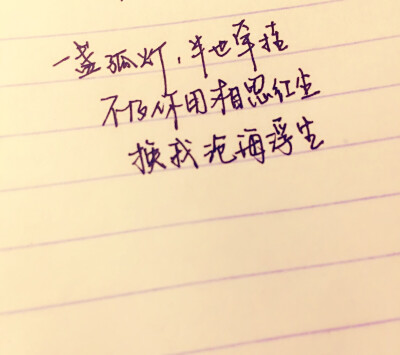 一盏孤灯，半世牵挂
不你用相思红尘
换我沧海浮生